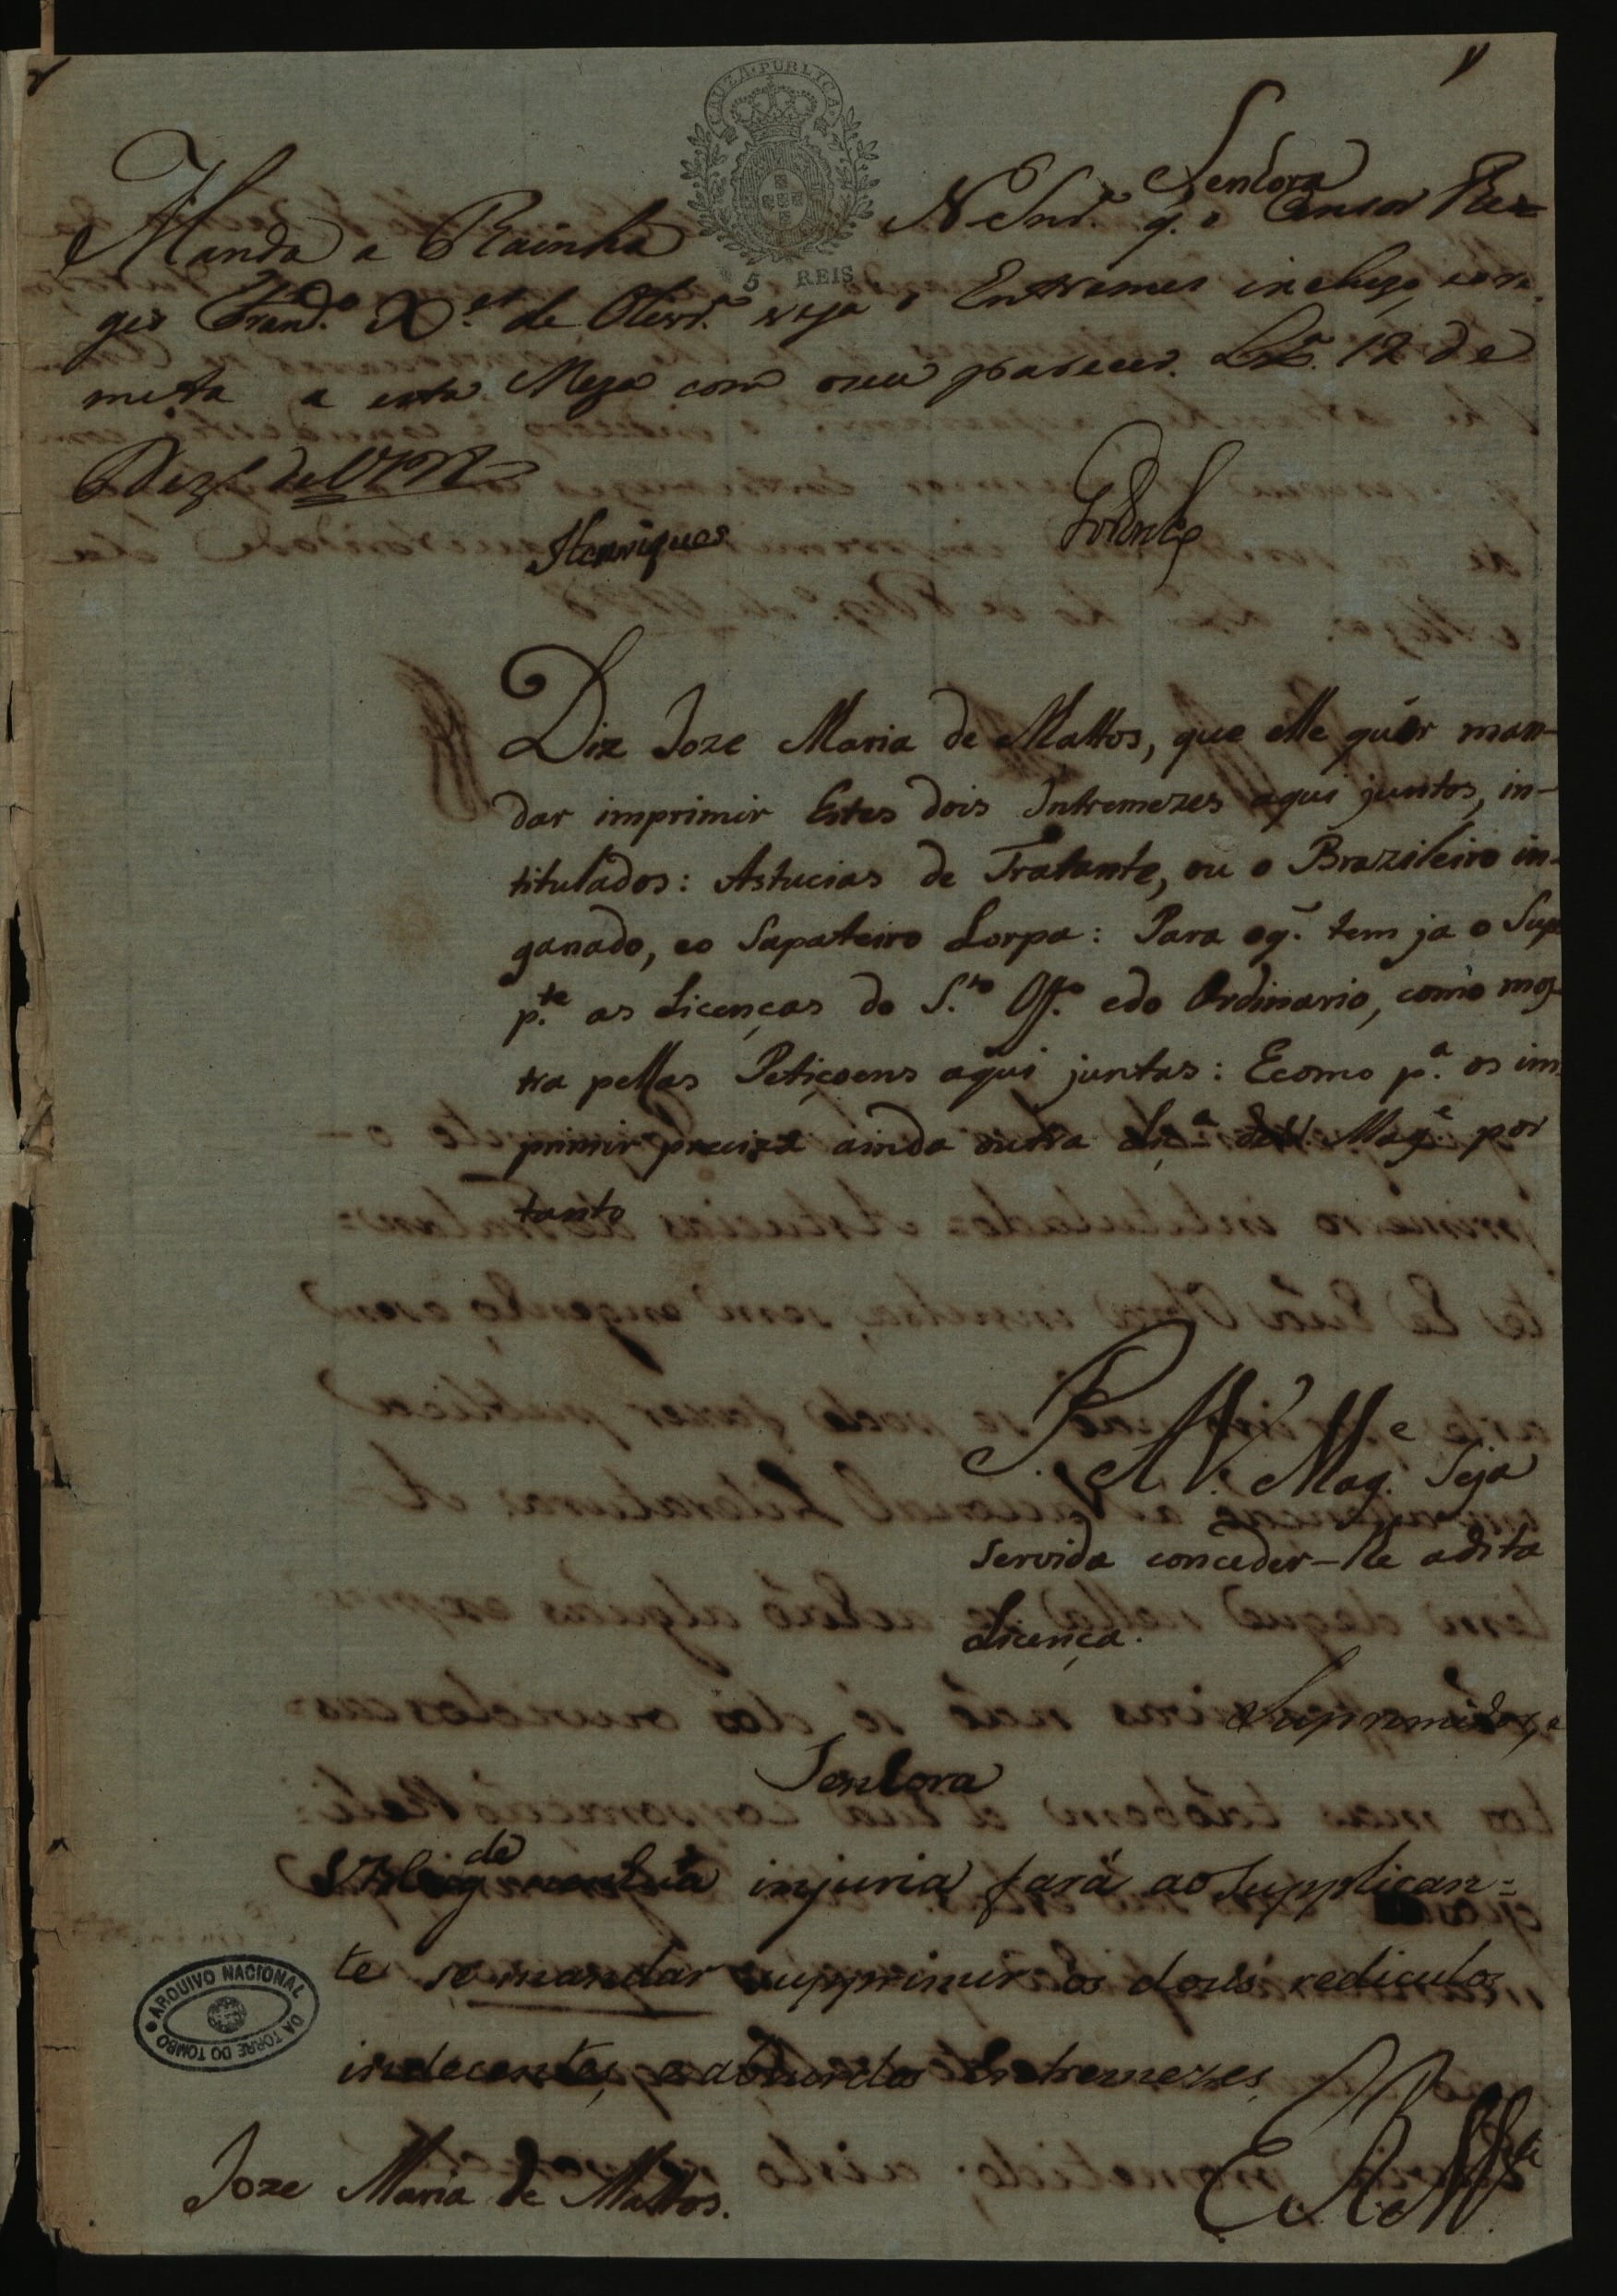 CAUZA PUBLICA
5 REIS
Senhora
Manda a Rainha N Snr.ª q. o Censor Re-
gio Fran.co X.er de Olivr.ª veja o Entremes incluzo, e re-
meta a esta Meza com o seu parecer. Lxª. 12 de
Dez.º de
Henriques
Diz Joze Maria de Mattos, que elle quér man-
dar imprimir Estes dois Intremezes aqui juntos, in-
titulados: Astucias de Tratante, ou o Brazileiro in-
ganado, eo Sapateiro Lorpa: Para oq̃. tem ja o Sup
p.te as Licenças do S.to Off.º edo Ordinario, como mos-
tra pellas Petiçoens aqui juntas: Ecomo p.ª os im-
primir preciza ainda outra Liç.ª de V. Mag.e por
tanto
P. A V. Mag.e Seja
Servida conceder-lhe adita
Licença.
Senhora
injuria fará ao Supplican=
te se mandar supprimir os dous rediculos
indecentes, e absurdos Entremezes
E. R. M.ce
Joze Maria de Mattos.
ARQUIVO NACIONAL DA TORRE DO TOMBO